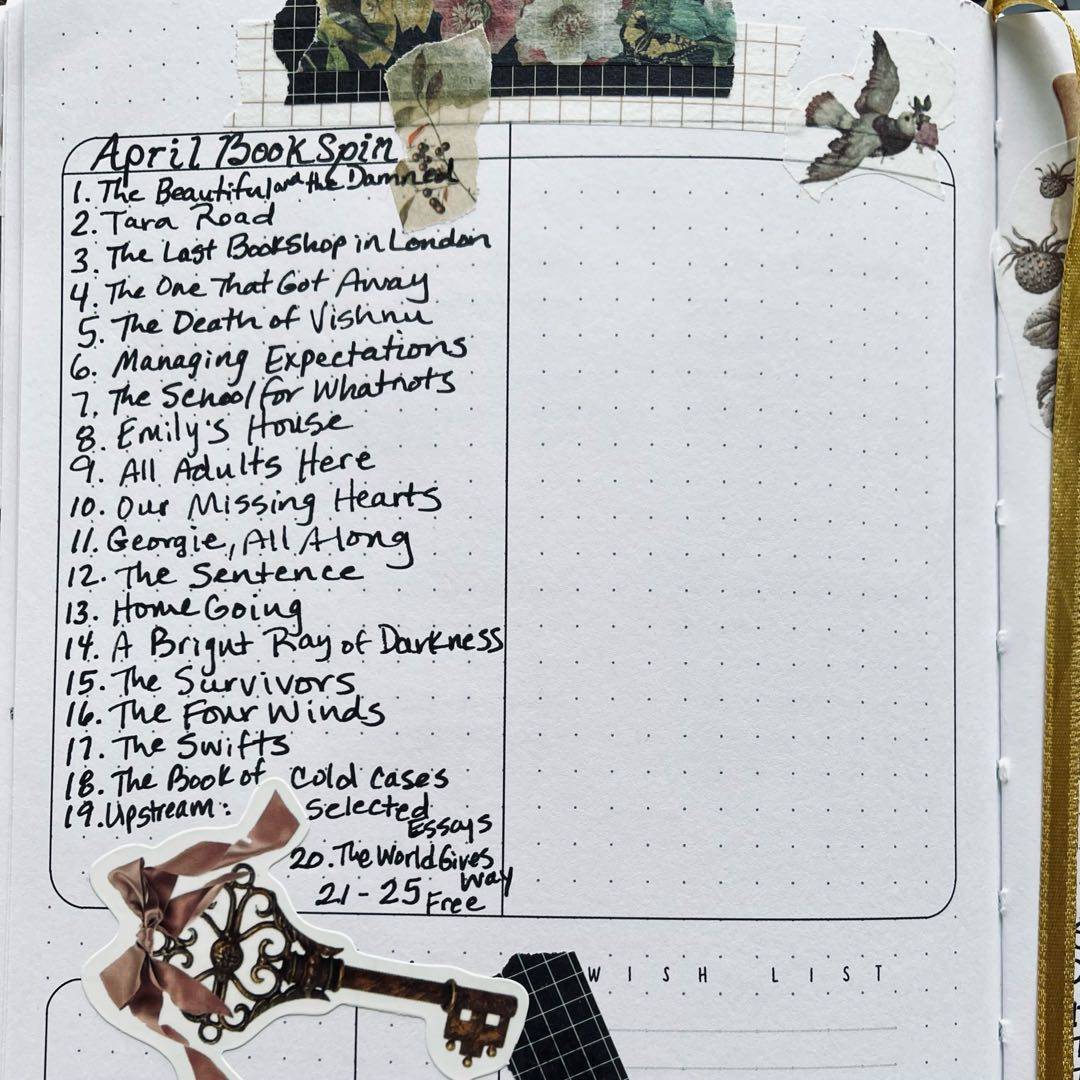 April Book Spin
1. The Beautiful and the Damned
2. Tara Road
3. The Last Bookshop in London
4. The One That Got Away
5. The Death of Vishnu
6. Managing Expectations
7. The School for Whatnots
8. Emily's House
9. All Adults Here
10. Our Missing Hearts
11. Georgie, All Along
12. The Sentence
13. Home Going
14. A Bright Ray of Darkness
15. The Survivors
16. The Four Winds
17. The Swifts
18. The Book of Cold Cases
19. Upstream: Selected
Essays
20. The World Gives
Way
21-25 Free
WISH LIST